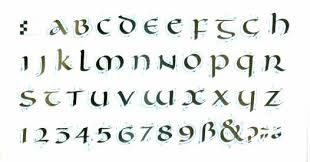 A B C D E F G C h
I J K L M N N O P Q R
S T T U V W X X Y Z
1 2 3 4 5 6 7 8 9 ß &